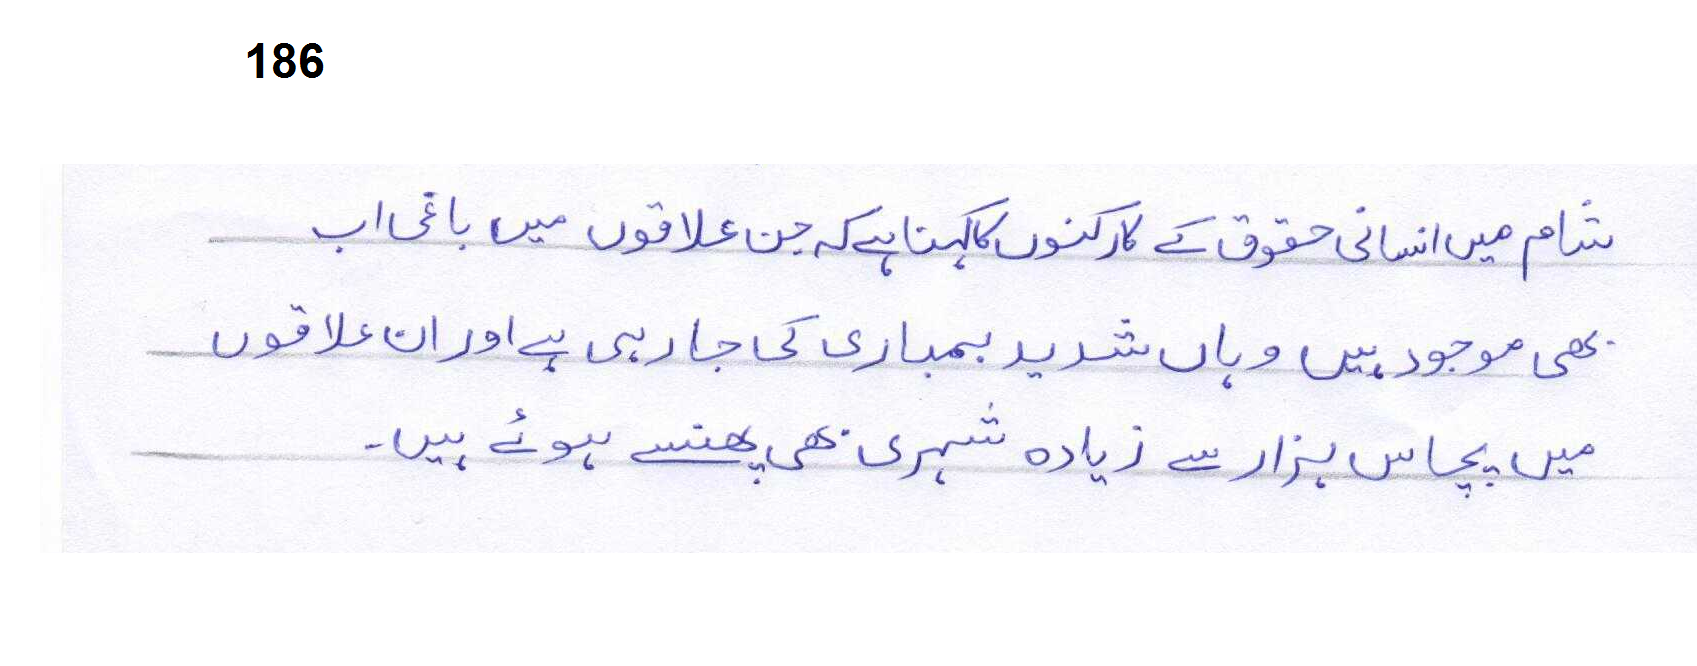 186
شام میں انسانی حقوق کے کارکنوں کا کہنا ہے کہ جن علاقوں میں باغی اب
بھی موجود ہیں وہاں شدید بمباری کی جا رہی ہے اور ان علاقوں
میں پچاس ہزار سے زیادہ شہری بھی پھنسے ہوئے ہیں۔